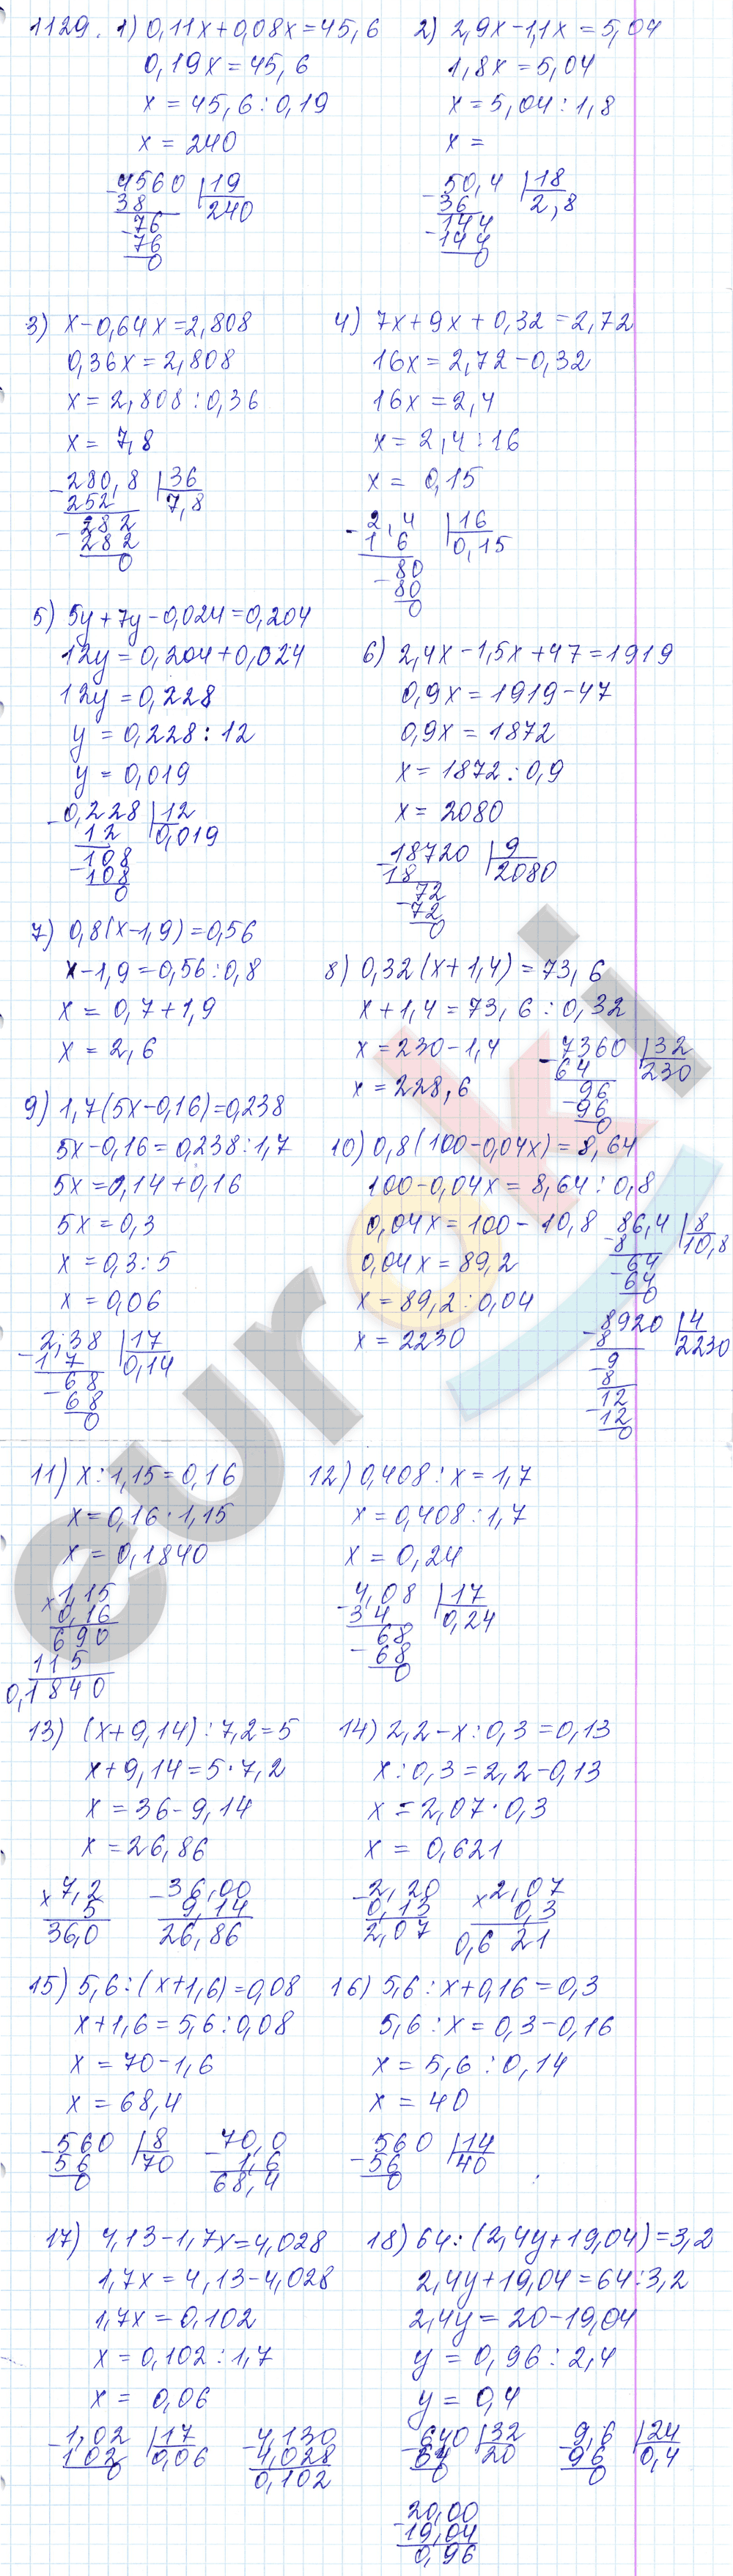 1129. 1) 0,11x+0,08x=45,6
0,19x=45,6
x=45,6:0,19
x=240
-4560 |19
38 240
-76
76
0
2) 2,9x-1,1x=5,04
1,8x=5,04
x=5,04:1,8
x=
-50,4 |18
36 2,8
-144
144
0
3) x-0,64x=2,808
0,36x=2,808
x=2,808:0,36
x=7,8
-280,8 |36
252 7,8
-282
282
0
4) 7x+9x+0,32=2,72
16x=2,72-0,32
16x=2,4
x=2,4:16
x=0,15
-2,4 |16
1 6 0,15
-80
80
0
5) 5y+7y-0,024=0,204
12y=0,204+0,024
12y=0,228
y=0,228:12
y=0,019
-0,228 |12
12 0,019
-108
108
0
6) 2,4x-1,5x+47=1919
0,9x=1919-47
0,9x=1872
x=1872:0,9
x=2080
-18720 |9
18 2080
-72
72
0
7) 0,8(x-1,9)=0,56
x-1,9=0,56:0,8
x=0,7+1,9
x=2,6
8) 0,32(x+1,4)=73,6
x+1,4=73,6:0,32
x=230-1,4
x=228,6
-7360 |32
64 230
-96
96
0
9) 1,7(5x-0,16)=0,238
5x-0,16=0,238:1,7
5x=0,14+0,16
5x=0,3
x=0,3:5
x=0,06
-2,38 |17
1 7 0,14
-68
68
0
10) 0,8(100-0,04x)=8,64
100-0,04x=8,64:0,8
0,04x=100-10,8
0,04x=89,2
x=89,2:0,04
x=2230
-86,4 |8
8 10,8
-64
64
0
-8920 |4
8 2230
-9
8
-12
12
0
11) x:1,15=0,16
x=0,16·1,15
x=0,1840
x1,15
0,16
690
115
0,1840
12) 0,408:x=1,7
x=0,408:1,7
x=0,24
-4,08 |17
3 4 0,24
-68
68
0
13) (x+9,14):7,2=5
x+9,14=5·7,2
x=36-9,14
x=26,86
x7,2
5
36,0
-36,00
9,14
26,86
14) 2,2-x:0,3=0,13
x:0,3=2,2-0,13
x=2,07·0,3
x=0,621
-2,20
0,13
2,07
x2,07
0,3
0,621
15) 5,6:(x+1,6)=0,08
x+1,6=5,6:0,08
x=70-1,6
x=68,4
-560 |8
56 70
0
-70,0
1,6
68,4
16) 5,6:x+0,16=0,3
5,6:x=0,3-0,16
x=5,6:0,14
x=40
-560 |14
56 40
0
17) 4,13-1,7x=4,028
1,7x=4,13-4,028
1,7x=0,102
x=0,102:1,7
x=0,06
-1,02 |17
102 0,06
0
-4,130
4,028
0,102
18) 64:(2,4y+19,04)=3,2
2,4y+19,04=64:3,2
2,4y=20-19,04
y=0,96:2,4
y=0,4
-640 |32
64 20
0
-9,6 |24
96 0,4
0
-20,00
19,04
0,96
euroki